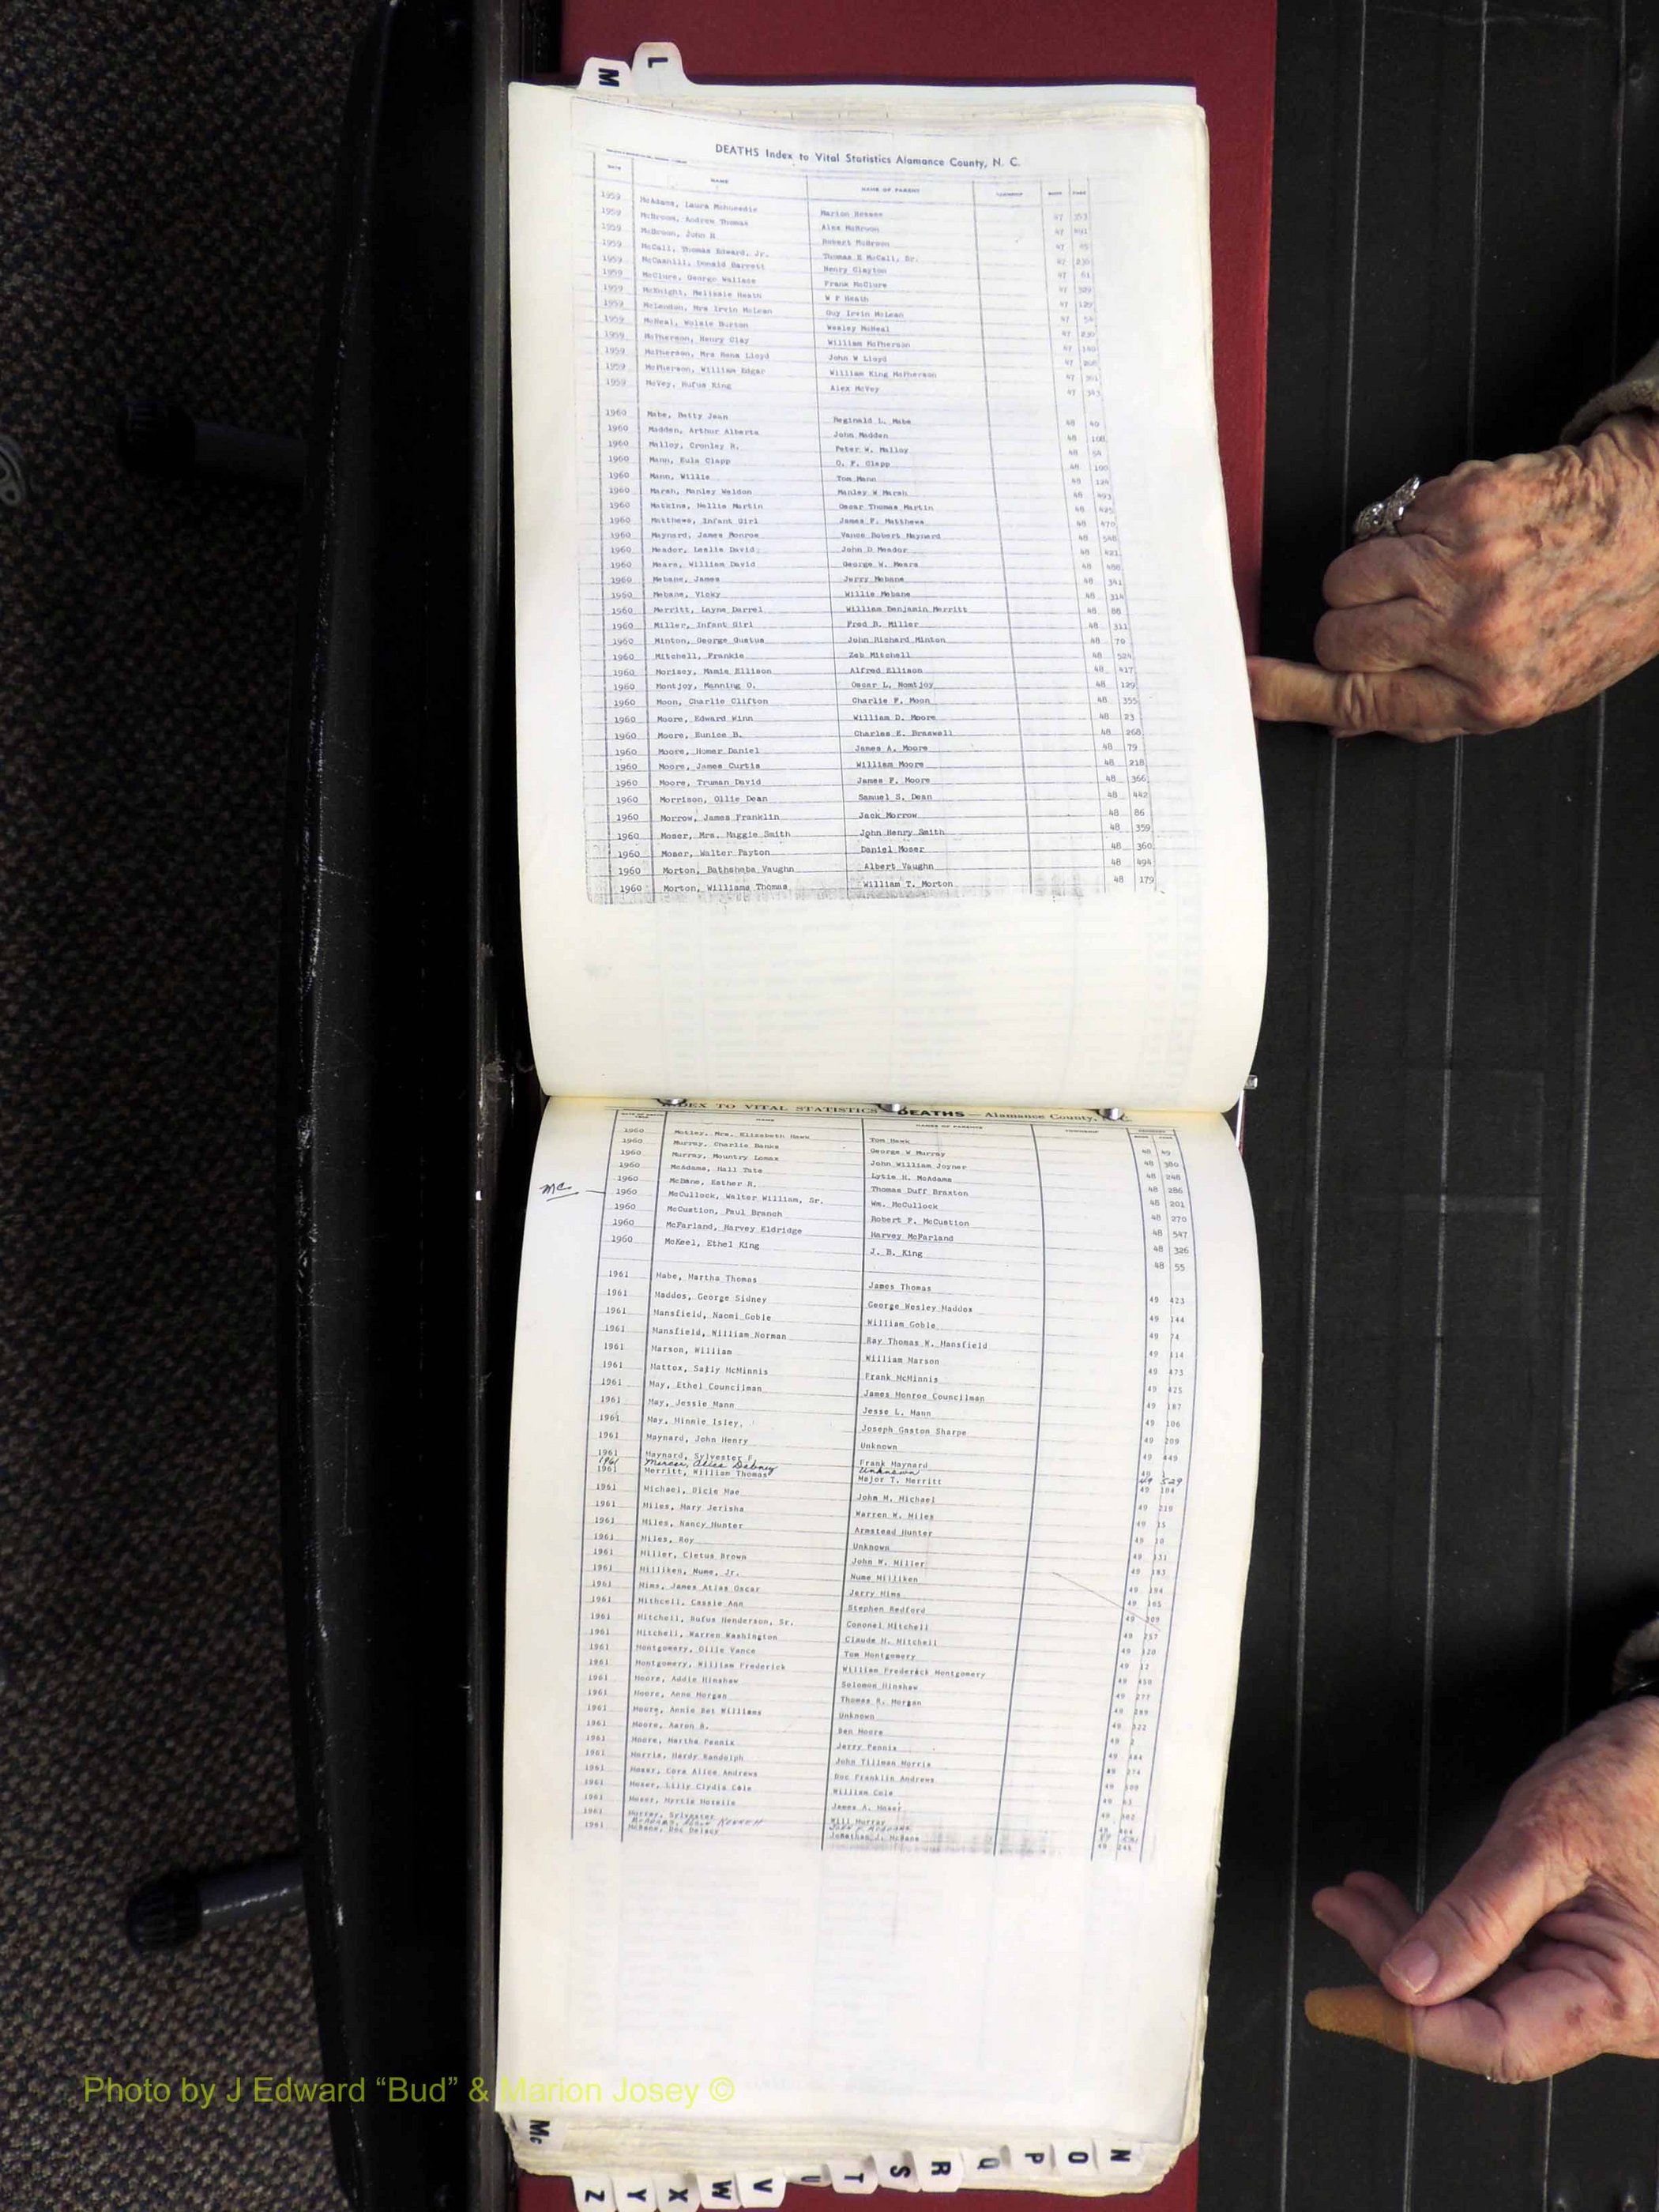 L
M
DEATHS Index to Vital Statistics Alamance County, N. C.
DATE NAME NAME OF PARENT TOWNSHIP BOOK PAGE
1959 McAdams, Laura Marion 47 353
1959 McBroom, Andrew Thomas Alex McBroom 47 491
1959 McBroom, John H Robert McBroom 47 45
1959 McCall, Thomas Edward, Jr. Thomas E McCall, Sr. 47 236
1959 McCaskill, Donald Barrett Henry Clayton 47 61
1959 McClure, George Wallace Frank McClure 47 329
1959 McKnight, Melissie Heath W F Heath 47 129
1959 McLendon, Mrs Irvin McLean Guy Irvin McLean 47 54
1959 McNeal, Wolsie Burton Wesley McNeal 47 230
1959 McPherson, Henry Clay William McPherson 47 140
1959 McPherson, Mrs Rena Lloyd John W Lloyd 47 268
1959 McPherson, William Edgar William King McPherson 47 361
1959 McVey, Rufus King Alex McVey 47 343
1960 Mabe, Betty Jean Reginald L. Mabe 48 40
1960 Madden, Arthur Alberta John Madden 48 108
1960 Malloy, Cronley R. Peter W. Malloy 48 54
1960 Mann, Eula Clapp O. F. Clapp 48 100
1960 Mann, Willie Tom Mann 48 124
1960 Marsh, Manley Weldon Manley W Marsh 48 493
1960 Matkins, Nellie Martin Oscar Thomas Martin 48 425
1960 Matthews, Infant Girl James F. Matthews 48 470
1960 Maynard, James Monroe Vance Robert Maynard 48 548
1960 Meador, Leslie David John D Meador 48 421
1960 Mears, William David George W. Mears 48 488
1960 Mebane, James Jerry Mebane 48 341
1960 Mebane, Vicky Willie Mebane 48 314
1960 Merritt, Layne Darrel William Benjamin Merritt 48 88
1960 Miller, Infant Girl Fred D. Miller 48 311
1960 Minton, George Gustus John Richard Minton 48 70
1960 Mitchell, Frankie Zeb Mitchell 48 524
1960 Morisey, Mamie Ellison Alfred Ellison 48 417
1960 Montjoy, Manning O. Oscar L. Nomtjoy 48 129
1960 Moon, Charlie Clifton Charlie F. Moon 48 355
1960 Moore, Edward Winn William D. Moore 48 23
1960 Moore, Eunice B. Charles E. Braswell 48 268
1960 Moore, Homer Daniel James A. Moore 48 79
1960 Moore, James Curtis William Moore 48 218
1960 Moore, Truman David James F. Moore 48 366
1960 Morrison, Ollie Dean Samuel S. Dean 48 442
1960 Morrow, James Franklin Jack Morrow 48 86
1960 Moser, Mrs. Maggie Smith John Henry Smith 48 359
1960 Moser, Walter Payton Daniel Moser 48 360
1960 Morton, Bathsheba Vaughn Albert Vaughn 48 494
1960 Morton, Williams Thomas William T. Morton 48 179
INDEX TO VITAL STATISTICS — DEATHS — Alamance County, N. C.
NAME NAMES OF PARENTS TOWNSHIP
1960 Motley, Mrs. Elizabeth Hawk Tom Hawk 48 49
1960 Murray, Charlie Banks George W Murray 48 380
1960 Murray, Mountry Lomax John William Joyner 48 248
1960 McAdams, Hall Tate Lytie H. McAdams 48 286
1960 McBane, Esther R. Thomas Duff Braxton 48 201
Mc 1960 McCullock, Walter William, Sr. Wm. McCullock 48 270
1960 McCustion, Paul Branch Robert F. McCustion 48 547
1960 McFarland, Harvey Eldridge Harvey McFarland 48 326
1960 McKeel, Ethel King J. B. King 48 55
1961 Mabe, Martha Thomas James Thomas 49 423
1961 Maddos, George Sidney George Wesley Maddox 49 144
1961 Mansfield, Naomi Goble William Goble 49 74
1961 Mansfield, William Norman Ray Thomas W. Mansfield 49 114
1961 Marson, William William Marson 49 473
1961 Mattox, Sally McMinnis Frank McMinnis 49 425
1961 May, Ethel Councilman James Monroe Councilman 49 187
1961 May, Jessie Mann Jesse L. Mann 49 106
1961 May, Minnie Isley Joseph Gaston Sharpe 49 209
1961 Maynard, John Henry Unknown 49 449
1961 Maynard, Sylvester F. Frank Maynard 49
1961 Mercer, Alice Dabney Unknown 49 529
1961 Merritt, William Thomas Major T. Merritt 49 104
1961 Michael, Dicie Mae John M. Michael 49 219
1961 Miles, Mary Jerisha Warren W. Miles 49 15
1961 Miles, Nancy Hunter Armstead Hunter 49 10
1961 Miles, Roy Unknown 49 131
1961 Miller, Cletus Brown John W. Miller 49 193
1961 Milliken, Nume, Jr. Nume Milliken 49 194
1961 Mims, James Atlas Oscar Jerry Mims 49 165
1961 Mithcell, Cassie Ann Stephen Redford 49 309
1961 Mitchell, Rufus Henderson, Sr. Cononel Mitchell 49 257
1961 Mitchell, Warren Washington Claude H. Mitchell 49 120
1961 Montgomery, Ollie Vance Tom Montgomery 49 12
1961 Montgomery, William Frederick William Frederick Montgomery 49 450
1961 Moore, Addie Hinshaw Solomon Hinshaw 49 277
1961 Moore, Anne Morgan Thomas R. Morgan 49 299
1961 Moore, Annie Bet Williams Unknown 49 322
1961 Moore, Aaron B. Ben Moore 49 2
1961 Moore, Martha Pennix Jerry Pennix 49 484
1961 Morris, Hardy Randolph John Tillman Morris 49 274
1961 Moser, Cora Alice Andrews Doc Franklin Andrews 49 509
1961 Moser, Lilly Clydia Cole William Cole 49 63
1961 Moser, Myrtle Rosella James A. Moser 49 302
1961 Murray, Sylvester Will Murray 49 464
McAdams, Kenneth John F. McAdams
1961 McBane, Doc Delacy Jonathan J. McBane 49 245
Photo by J Edward “Bud” & Marion Josey ©
Mc
N
O
P
Q
R
S
T
U
V
W
X
Y
Z